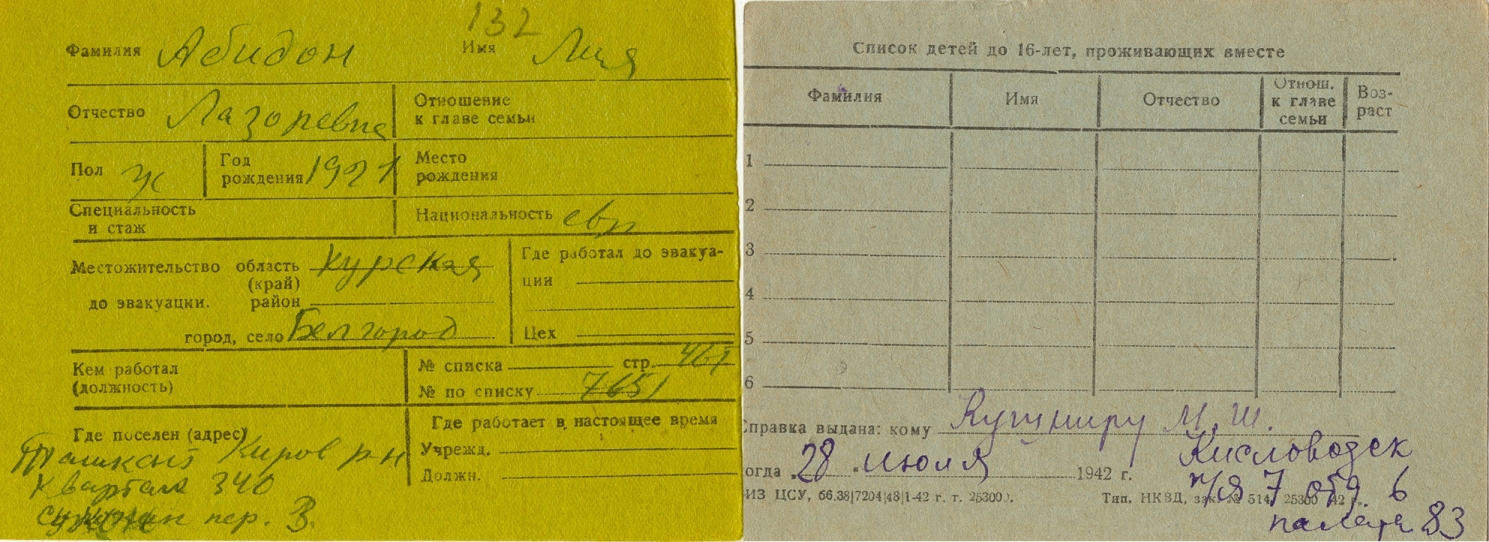 132
Фамилия Абидон Имя Лия
Отчество Лазоревна
Отношение к главе семьи
Пол ж Год рождения 1921
Место рождения
Специальность и стаж
Национальность евр
Местожительство область (край) Курская
до эвакуации. район
город, село Белгород
Где работал до эвакуа-
ции
Цех
Кем работал (должность)
№ списка стр. 461
№ по списку 7651
Где поселен (адрес)
Ташкент Киров р-н
Квартал 340
пер. 3.
Где работает в настоящее время
Учрежд.
Должн.
Список детей до 16-лет, проживающих вместе
Фамилия Имя Отчество Отнош. к главе семьи Воз-раст
1
2
3
4
5
6
Справка выдана: кому Кушниру М. Ш.
Кисловодск
когда 28 июля 1942 г.
п/я 7 отд. 6
палата 83
ИЗ ЦСУ, 66.38|7204|48|1-42 г. т. 25300).
Тип. НКВД, зак. № 514, 25300 42 г.